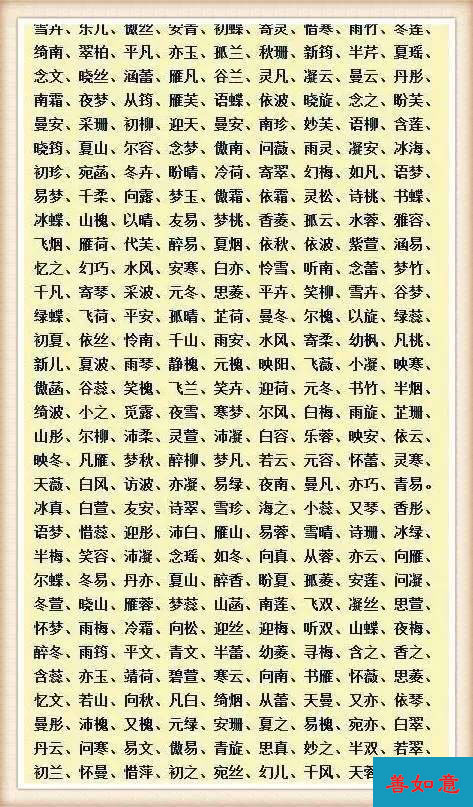 雪卉、乐儿、傲丝、安青、初蝶、寄灵、惜寒、雨竹、冬莲、
绮南、翠柏、平凡、亦玉、孤兰、秋珊、新筠、半芹、夏瑶、
念文、晓丝、涵蕾、雁凡、谷兰、灵凡、凝云、曼云、丹彤、
南霜、夜梦、从筠、雁芙、语蝶、依波、晓旋、念之、盼芙、
曼安、采珊、初柳、迎天、曼安、南珍、妙芙、语柳、含莲、
晓筠、夏山、尔容、念梦、傲南、问薇、雨灵、凝安、冰海、
初珍、宛菡、冬卉、盼晴、冷荷、寄翠、幻梅、如凡、语梦、
易梦、千柔、向露、梦玉、傲霜、依霜、灵松、诗桃、书蝶、
冰蝶、山槐、以晴、友易、梦桃、香菱、孤云、水蓉、雅容、
飞烟、雁荷、代芙、醉易、夏烟、依秋、依波、紫萱、涵易、
忆之、幻巧、水风、安寒、白亦、怜雪、听南、念蕾、梦竹、
千凡、寄琴、采波、元冬、思菱、平卉、笑柳、雪卉、谷梦、
绿蝶、飞荷、平安、孤晴、芷荷、曼冬、尔槐、以旋、绿蕊、
初夏、依丝、怜南、千山、雨安、水风、寄柔、幼枫、凡桃、
新儿、夏波、雨琴、静槐、元槐、映阳、飞薇、小凝、映寒、
傲菡、谷蕊、笑槐、飞兰、笑卉、迎荷、元冬、书竹、半烟、
绮波、小之、觅露、夜雪、寒梦、尔风、白梅、雨旋、芷珊、
山彤、尔柳、沛柔、灵萱、沛凝、白容、乐蓉、映安、依云、
映冬、凡雁、梦秋、醉柳、梦凡、若云、元容、怀蕾、灵寒、
天薇、白风、访波、亦凝、易绿、夜南、曼凡、亦巧、青易。
冰真、白萱、友安、诗翠、雪珍、海之、小蕊、又琴、香彤、
语梦、惜蕊、迎彤、沛白、雁山、易蓉、雪晴、诗珊、冰绿、
半梅、笑容、沛凝、念瑶、如冬、向真、从蓉、亦云、向雁、
尔蝶、冬易、丹亦、夏山、醉香、盼夏、孤菱、安莲、问凝、
冬萱、晓山、雁蓉、梦蕊、山菡、南莲、飞双、凝丝、思萱、
怀梦、雨梅、冷霜、向松、迎丝、迎梅、听双、山蝶、夜梅、
醉冬、雨筠、平文、青文、半蕾、幼菱、寻梅、含之、香之、
含蕊、亦玉、靖荷、碧萱、寒云、向南、书雁、怀薇、思菱、
忆文、若山、向秋、凡白、绮烟、从蕾、天曼、又亦、依琴、
曼彤、沛槐、又槐、元绿、安珊、夏之、易槐、宛亦、白翠、
丹云、问寒、易文、傲易、青旋、思真、妙之、半双、若翠、
初兰、怀曼、惜萍、初之、宛丝、幻儿、千风、天蓉
善如意